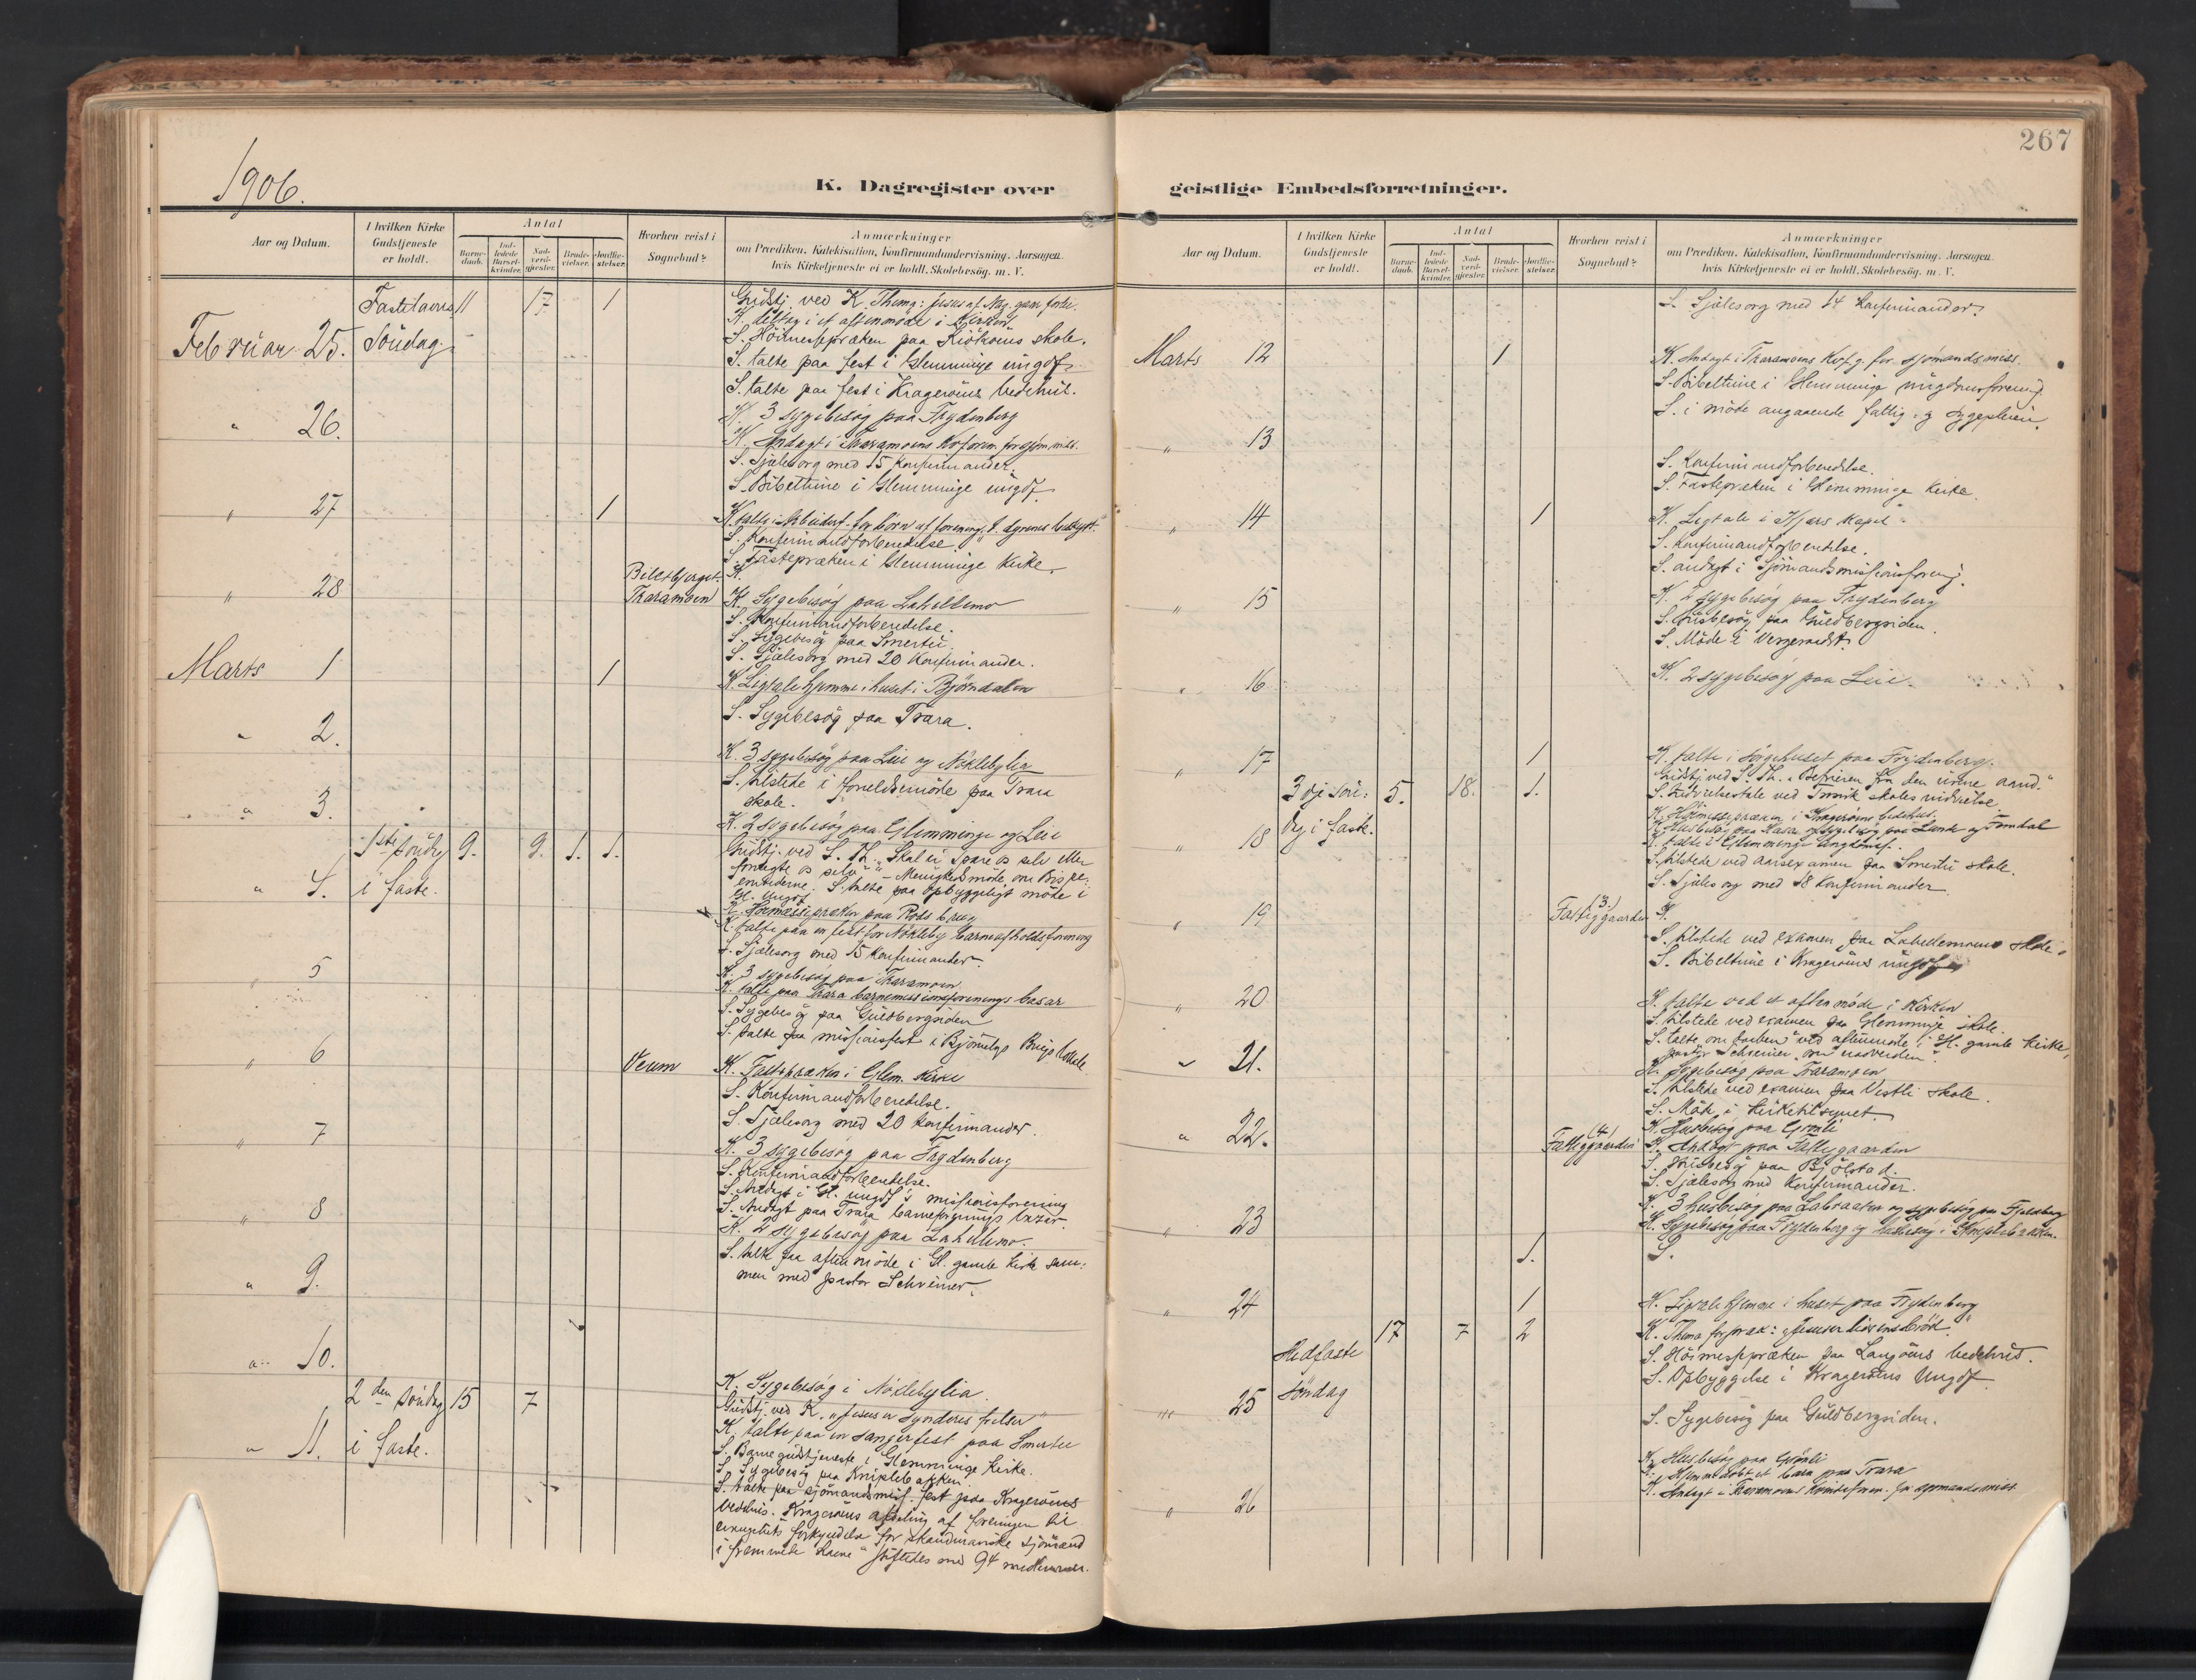 267
1906.
K. Dagregister over
geistlige Embedsforretninger.
Aar og Datum.
I hvilken Kirke Gudstjeneste er holdt.
Antal
Barne-daab.
Ind-ledede Barsel-kvinder.
Nad-verd-gjester.
Brude-vielser.
Jordfæ-stelser.
Hvorhen reist i Sognebud?
Anmærkninger
om Prædiken, Katekisation, Konfirmandundervisning, Aarsagen,
hvis Kirketjeneste ei er holdt, Skolebesøg. m. V.
Februar 25. Fastelavns Søndag. 11 17 1
Gudstj ved K. Thema: Jesus af Naz. gaar forbi.
K. deltog i et aftenmøde i Kirken
S. Høimesspræken paa Kiølhouis skole.
S. talte paa fest i Glemminge ungdf.
S. talte paa fest i Kragerøens bedehus.
" 26.
K. 3 sygebesøg paa Frydenberg
K. Andagt i Traramoens Kv.foren. for sjøm.miss.
S. Sjælesorg med 15 konfirmander.
S. Bibeltime i Glemminge ungdf.
" 27 1
S. Konfirmandforberedelse.
S. Fastepræken i Glemminge Kirke.
" 28 Traramoen
K.
K. Sygebesøg paa Lahellemo
S. Konfirmandforberedelse.
S. Sygebesøg paa Smertu.
S. Sjælesorg med 20 Konfirmander.
Marts 1 1
K. Ligtale hjemme i huset i Bjørndalen
S. Sygebesøg paa Trara.
" 2.
K. 3 sygebesøg paa Leie og Nøklebylia
S. tilstede i foreldremøde paa Trara
skole.
" 3.
K. 2 sygebesøg paa Glemminge og Leie
" 4. 1ste søndag i faste. 9. 9. 1. 1.
Gudstj. ved S. Th. "Skal vi spare os selv eller
fornegte os selv" – Menighedsmøde om Bispe-
emnerne. S. talte paa opbyggeligt møde i
Gl. ungdf.
K. Høimessepræken paa Rods brug
K. talte paa en fest for Nøkleby barneafholdsforening
S. Sjælesorg med 15 Konfirmander.
" 5
K. 3 sygebesøg paa Traramoen
K. talte paa Trara barnemissionsforenings basar
S. Sygebesøg paa Guldbergsiden
S. talte paa missionsfest i Bjørnelys Brugs lokale
" 6 Veum
K. Fastepræken i Glem. Kirke
S. Konfirmandforberedelse.
S. Sjælesorg med 20 konfirmander.
" 7
K. 3 sygebesøg paa Frydenberg
S. Konfirmandforberedelse.
S. Andagt i Gl. ungdf's missionsforening
S. Andagt paa Trara barneforenings bazar.
" 8
K. 2 sygebesøg paa Lahellemo.
S. talte paa aftenmøde i Gl. gamle Kirke sam-
men med pastor Schreiner.
" 9.
" 10.
K. Sygebesøg i Nøklebylia.
" 11. 2den søndag i faste. 15 7
Gudstj. ved K. "Jesus er synderes frelser"
K. talte paa en sangerfest paa Smertu
S. Barnegudstjeneste i Glemminge Kirke.
S. Sygebesøg paa Kniplebakken
S. talte paa sjømandsmiss. fest paa Kragerøens
bedehus. Kragerøens afdeling af foreningen til
evangeliets forkyndelse for skandinaviske sjømænd
i fremmede havne" stiftedes med 94 medlemmer.
S. Sjælesorg med 14 Konfirmander.
Marts 12 1
K. Andagt i Traramoens Kvf.g. for sjømandsmiss.
S. Bibeltime i Glemminge ungdomsforening.
S. i møde angaaende fattig- og sygepleien.
" 13
S. Konfirmandforberedelse.
S. Fastepræken i Glemminge Kirke.
" 14 1
K. Ligtale i kapel.
S. Konfirmandforberedelse.
S. andagt i Sjømandsmissionsforeng.
" 15
K. 2 sygebesøg paa Frydenberg
S. husbesøg paa Guldbergsiden.
S. Møde i Vergeraadet.
" 16
K. 2 sygebesøg paa Leie.
" 17 1
K. talte i sørgehuset paa Frydenberg.
" 18 3dje søn-dag i faste. 5. 18. 1.
Gudstj ved S. Th. "Befrieren fra den urene aand."
S. Indvielsestale ved Trosvik skoles indvielse
K. Høimessepræken i Kragerøens bedehus.
K. talte i Glemminge Ungdomsf.
S. tilstede ved aarsexamen paa Smertu skole.
S. Sjælesorg med 18 Konfirmander
" 19 Fattiggaarden (3.)
K.
S. tilstede ved examen paa Lahellemoens skole.
S. Bibeltime i Kragerøens ungdf.
" 20
K. talte ved et aftenmøde i kirken
S. tilstede ved examen paa Glemminge skole.
S. talte om daaben ved aftenmøde i Gl. gamle Kirke,
pastor Schreiner om nadverden".
" 21.
K. Sygebesøg paa Traramoen
S. tilstede ved examen paa Vestli skole.
S. Møde i Kirketilsynet
" 22. Fattiggaarden (4)
K. Husbesøg paa Grønli
K. Andagt paa Fattiggaarden
S. Husbesøg paa Bjølstad.
S. Sjælesorg med Konfirmander.
" 23
K. 3 husbesøg paa Labraaten og sygebesøg paa Fjeldberg
K. Sygebesøg paa Frydenberg og husbesøg i Kniplebakken.
1. S.
" 24 1
K. Ligtale hjemme i huset paa Frydenberg
" 25 Midfaste Søndag 17 7 2
K. Thema for præk: "Jesus er livsens brød."
S. Høimesspræken paa Langøens bedehus.
S. Opbyggelse i Kragerøens Ungdf
S. Sygebesøg paa Guldbergsiden.
" 26
K. Husbesøg paa Grønli
K. Hjemmedøbt et barn paa Trara
K. Andagt i Traramoens Kvindeforen. for sjømandsmiss.